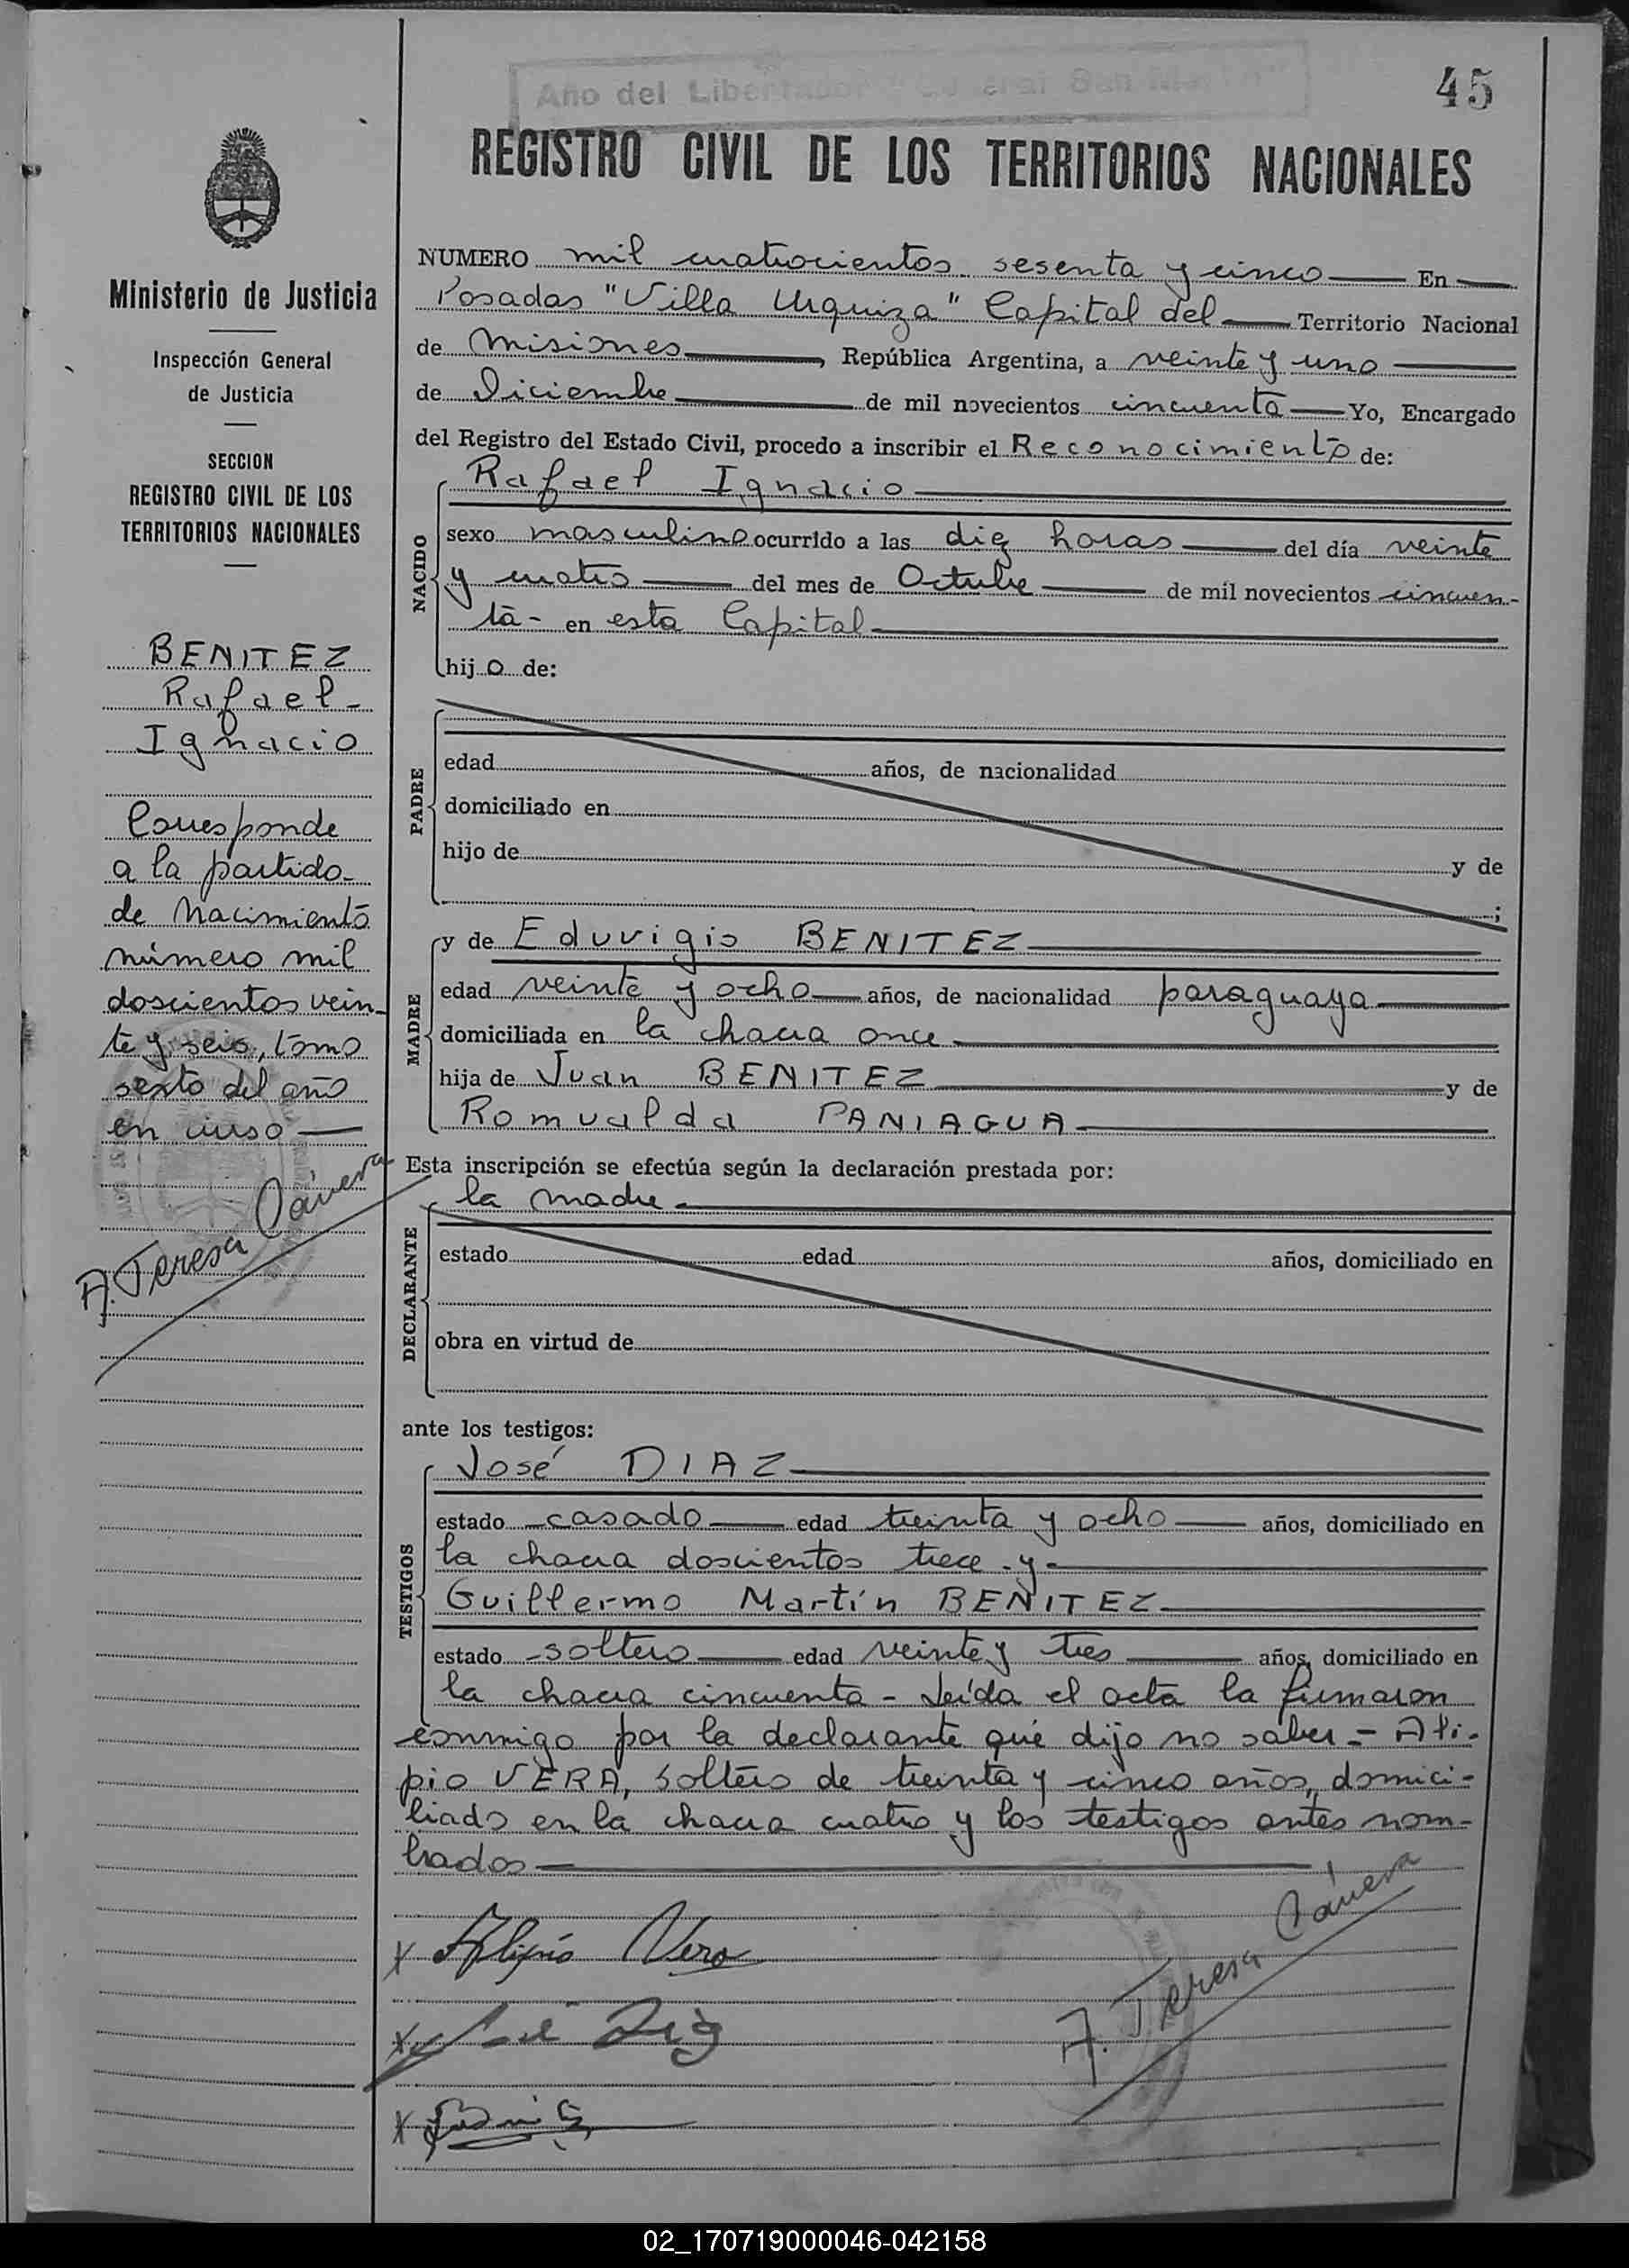 Año del Libertador "General San Martín"
45
REGISTRO CIVIL DE LOS TERRITORIOS NACIONALES
Ministerio de Justicia
Inspección General
de Justicia
SECCION
REGISTRO CIVIL DE LOS
TERRITORIOS NACIONALES
BENITEZ
Rafael
Ignacio
Corresponde
a la partida
de Nacimiento
número mil
doscientos vein
te y seis, tomo
sexto del año
en curso
A. Teresa Cávera
NUMERO mil cuatrocientos sesenta y cinco En
Posadas "Villa Urquiza" Capital del Territorio Nacional
de Misiones, República Argentina, a veinte y uno
de Diciembre de mil novecientos cincuenta Yo, Encargado
del Registro del Estado Civil, procedo a inscribir el Reconocimiento de:
Rafael Ignacio
NACIDO
sexo masculino ocurrido a las diez horas del día veinte
y cuatro del mes de Octubre de mil novecientos cincuen-
ta- en esta Capital
hijo de:
PADRE
edad años, de nacionalidad
domiciliado en
hijo de y de
;
MADRE
y de Eduvigis BENITEZ
edad veinte y ocho años, de nacionalidad paraguaya
domiciliada en la chacra once
hija de Juan BENITEZ y de
Romualda PANIAGUA
Esta inscripción se efectúa según la declaración prestada por:
la madre
DECLARANTE
estado edad años, domiciliado en
obra en virtud de
ante los testigos:
TESTIGOS
José DIAZ
estado casado edad treinta y ocho años, domiciliado en
la chacra doscientos trece y
Guillermo Martín BENITEZ
estado soltero edad veinte y tres años, domiciliado en
la chacra cincuenta - Leída el acta la firmaron
conmigo por la declarante que dijo no saber = Ali-
pio VERA, soltero de treinta y cinco años, domici-
liado en la chacra cuatro y los testigos antes nom-
brados
x Alipio Vera
x José Diaz
A. Teresa Cávera
x
02_170719000046-042158